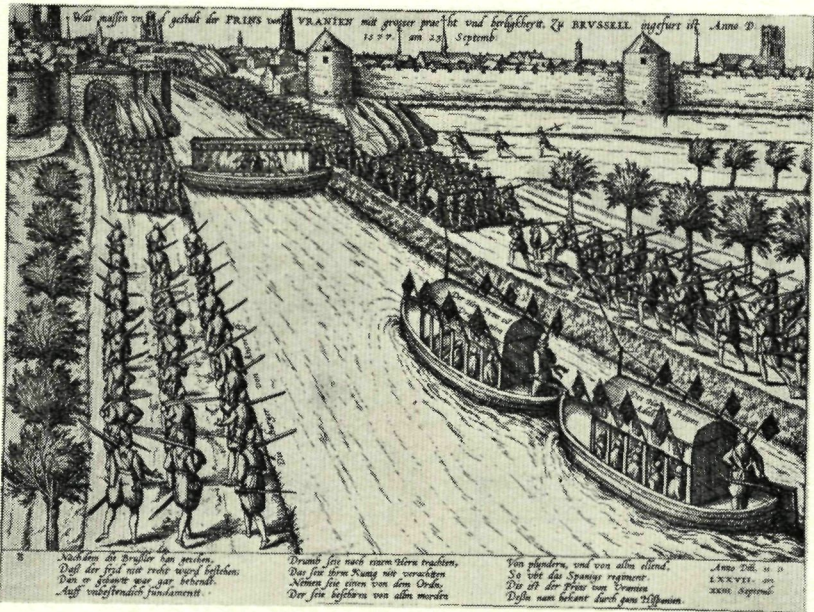 Was massen vnd gestalt der PRINS von VRANIEN mit grosser pracht vnd herligkheytt. Zu BRVSSELL ingefurt ist Anno D.
1577. am 23 Septemb.
Nachdem die Brußler han gesehen,
Daß der frid nit recht wurd bestehen:
Dan er gebawt war gar behendt.
Auff vnbestendich fundamentt.
Drumb seie nach einem Hern trachten,
Das seie ihrm Kunig nit verachten
Nemen seie einen von dem Ordn,
Der seie beschirm von albn morden
Von plundern, vnd von albn ellend,
So vbt das Spanigs regiment.
Dis ist der Prins von Vranien
Deßn nam bekant durch gans Hispanien.
Anno Dni. M D
LXXVII. am
XXIII. Septemb.